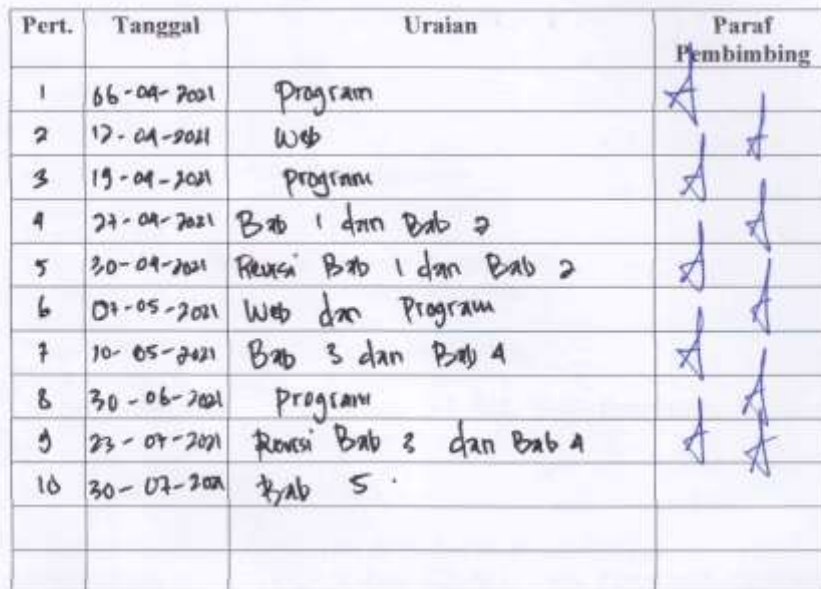 Pert. Tanggal Uraian Paraf Pembimbing
1 06-04-2021 Program
2 12-04-2021 Web
3 19-04-2021 Program
4 27-04-2021 Bab 1 dan Bab 2
5 30-04-2021 Revisi Bab 1 dan Bab 2
6 07-05-2021 Web dan Program
7 10-05-2021 Bab 3 dan Bab 4
8 30-06-2021 Program
9 23-07-2021 Revisi Bab 3 dan Bab 4
10 30-07-2021 Bab 5